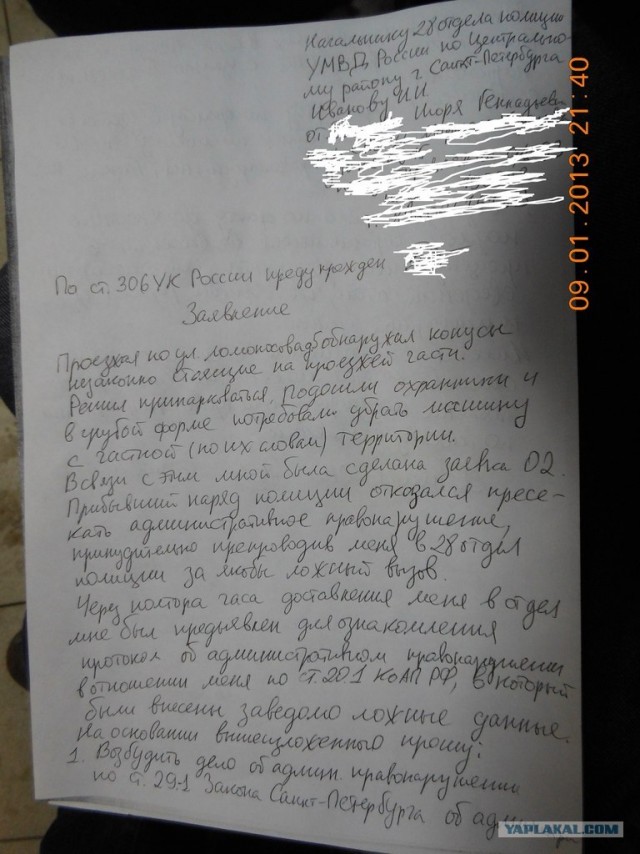 Начальнику 28 отдела полиции
УМВД России по Центрально-
му району г. Санкт-Петербурга
Иванову И.И.
от Игоря Геннадьеви
По ст. 306 УК России предупрежден
Заявление
Проезжая по ул. Ломоносова обнаружал конусы
незаконно стоящие на проезжей части.
Решил припарковаться. Подошли охранники и
в грубой форме потребовали убрать машину
с частной (по их словам) территории.
В связи с этим мной была сделана заявка 02.
Прибывший наряд полиции отказался пресе-
кать административное правонарушение,
принудительно препроводив меня в 28 отдел
полиции за якобы ложный вызов.
Через полтора часа доставления меня в отдел
мне был предъявлен для ознакомления
протокол об административном правонарушении
в отношении меня по ст. 20.1 КоАП РФ, в который
были внесены заведомо ложные данные.
На основании вышеизложенного прошу:
1. Возбудить дело об админ. правонарушении
по ст. 29-1 Закона Санкт-Петербурга об адм
09.01.2013 21:40
YAPLAKAL.COM